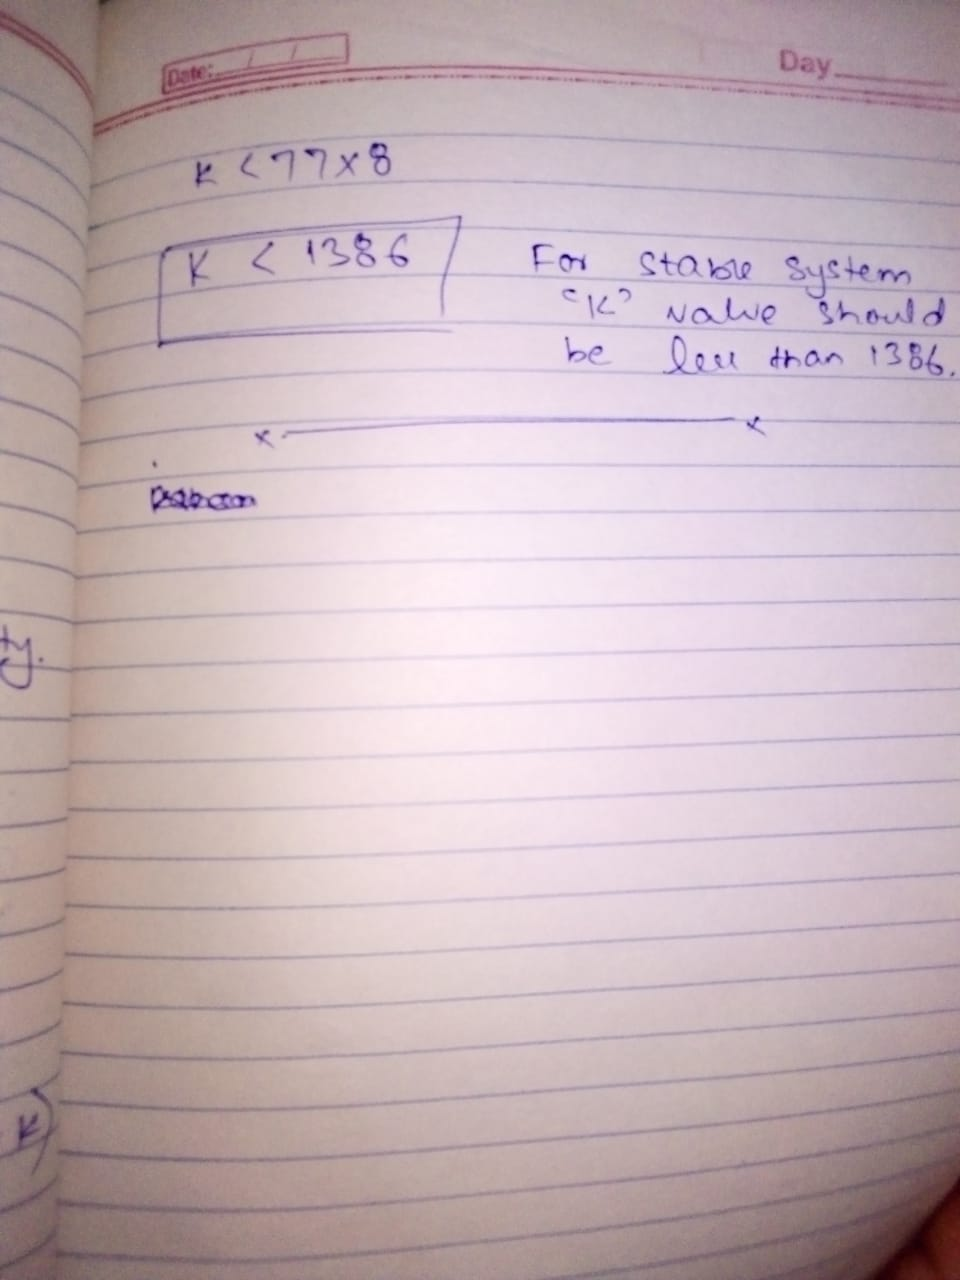 Date: / /
Day
K < 77 x 8
K < 1386
For stable system
"K" value should
be less than 1386.
x x
ty.
K)